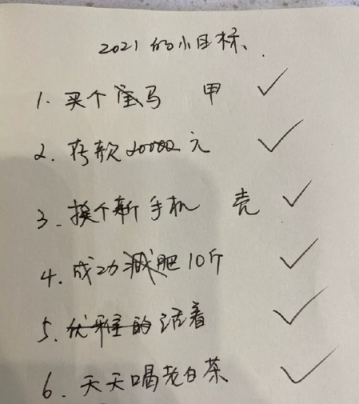 2021的小目标、
1. 买个宝马 甲 ✓
2. 存款20000元 ✓
3. 换个新手机 壳 ✓
4. 成功减肥10斤 ✓
5. 优雅的活着 ✓
6. 天天喝老白茶 ✓